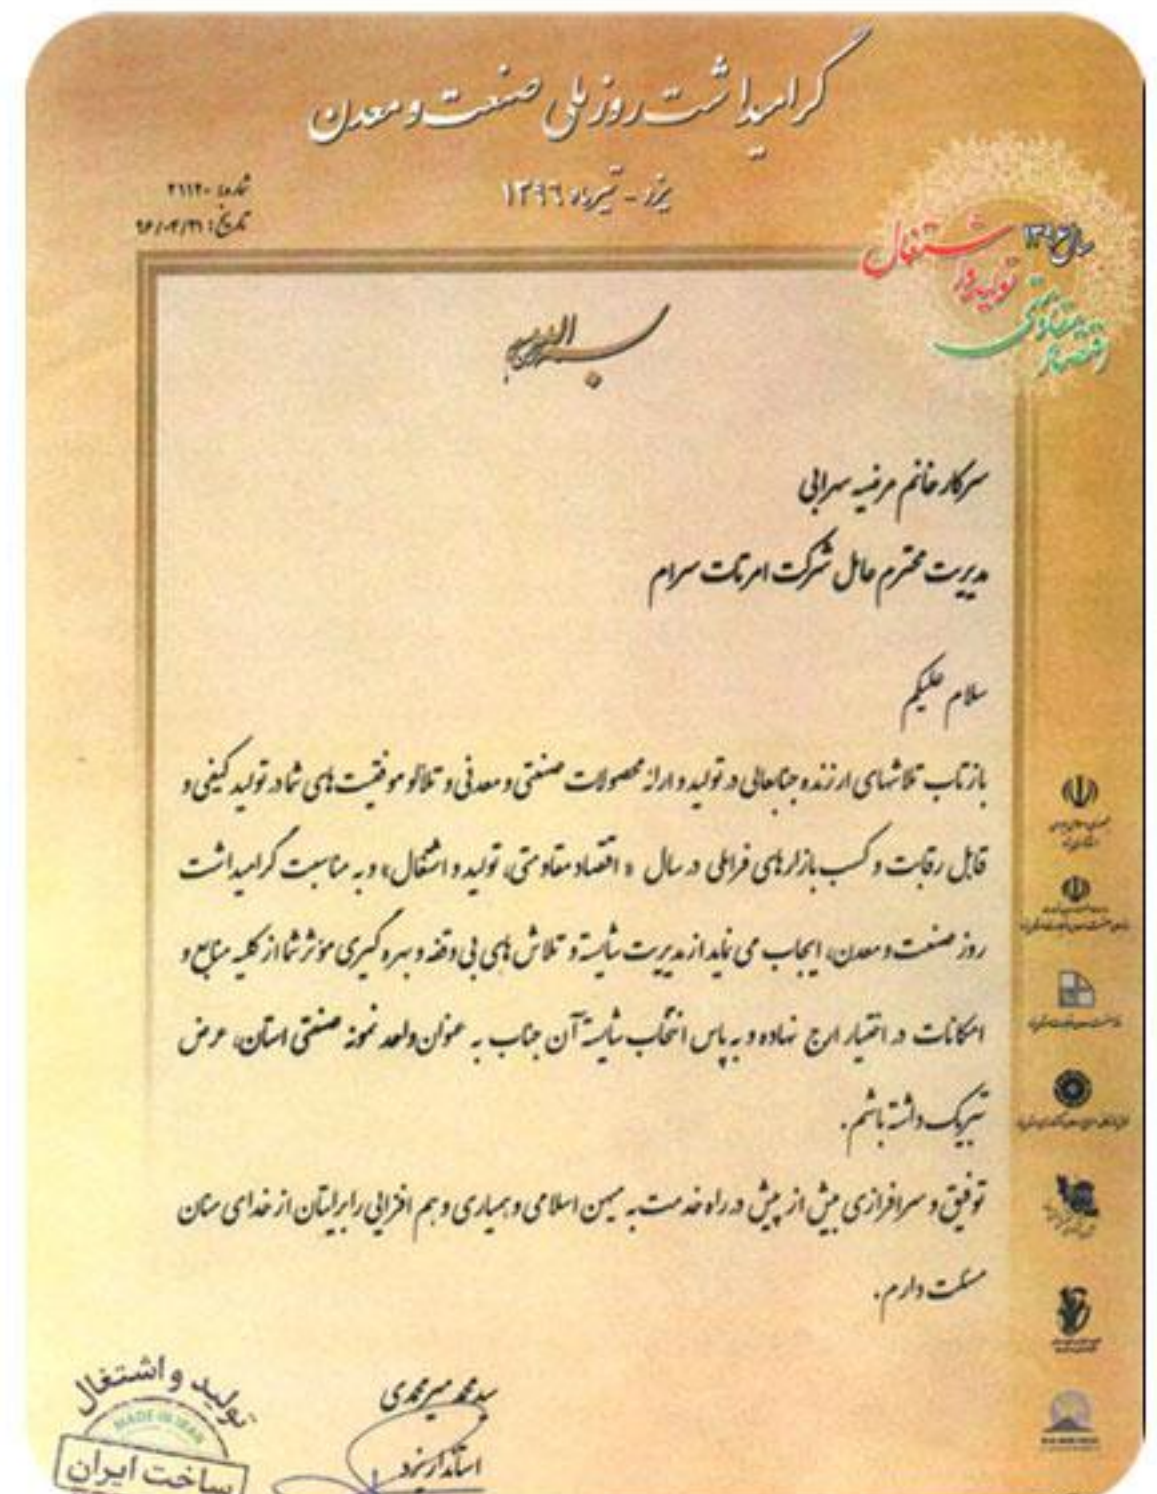 گرامیداشت روز ملی صنعت و معدن
یزد - تیرماه ۱۳۹۶
شماره: ۲۱۱۲۰
تاریخ: ۹۶/۰۴/۲۱
سال ۱۳۹۶
اقتصاد مقاومتی
تولید و اشتغال
سرکار خانم مرضیه سرابی
مدیریت محترم عامل شرکت امرتات سرام
سلام علیکم
بازتاب تلاشهای ارزنده جنابعالی در تولید و ارائه محصولات صنعتی و معدنی و تلالو موفقیت های شما در تولید کیفی و
قابل رقابت و کسب بازارهای فراملی در سال « اقتصاد مقاومتی، تولید و اشتغال» و به مناسبت گرامیداشت
روز صنعت و معدن، ایجاب می نماید از مدیریت شایسته و تلاش های بی وقفه و بهره گیری مؤثر شما از کلیه منابع و
امکانات در اختیار ارج نهاده و به پاس انتخاب شایسته آن جناب به عنوان واحد نمونه صنعتی استان، عرض
تبریک داشته باشم.
توفیق و سرافرازی بیش از پیش در راه خدمت به میهن اسلامی و همیاری و هم افزایی را برایتان از خدای منان
مسئلت دارم.
سید محمد میرمحمدی
استاندار یزد
تولید و اشتغال
MADE IN IRAN
ساخت ایران